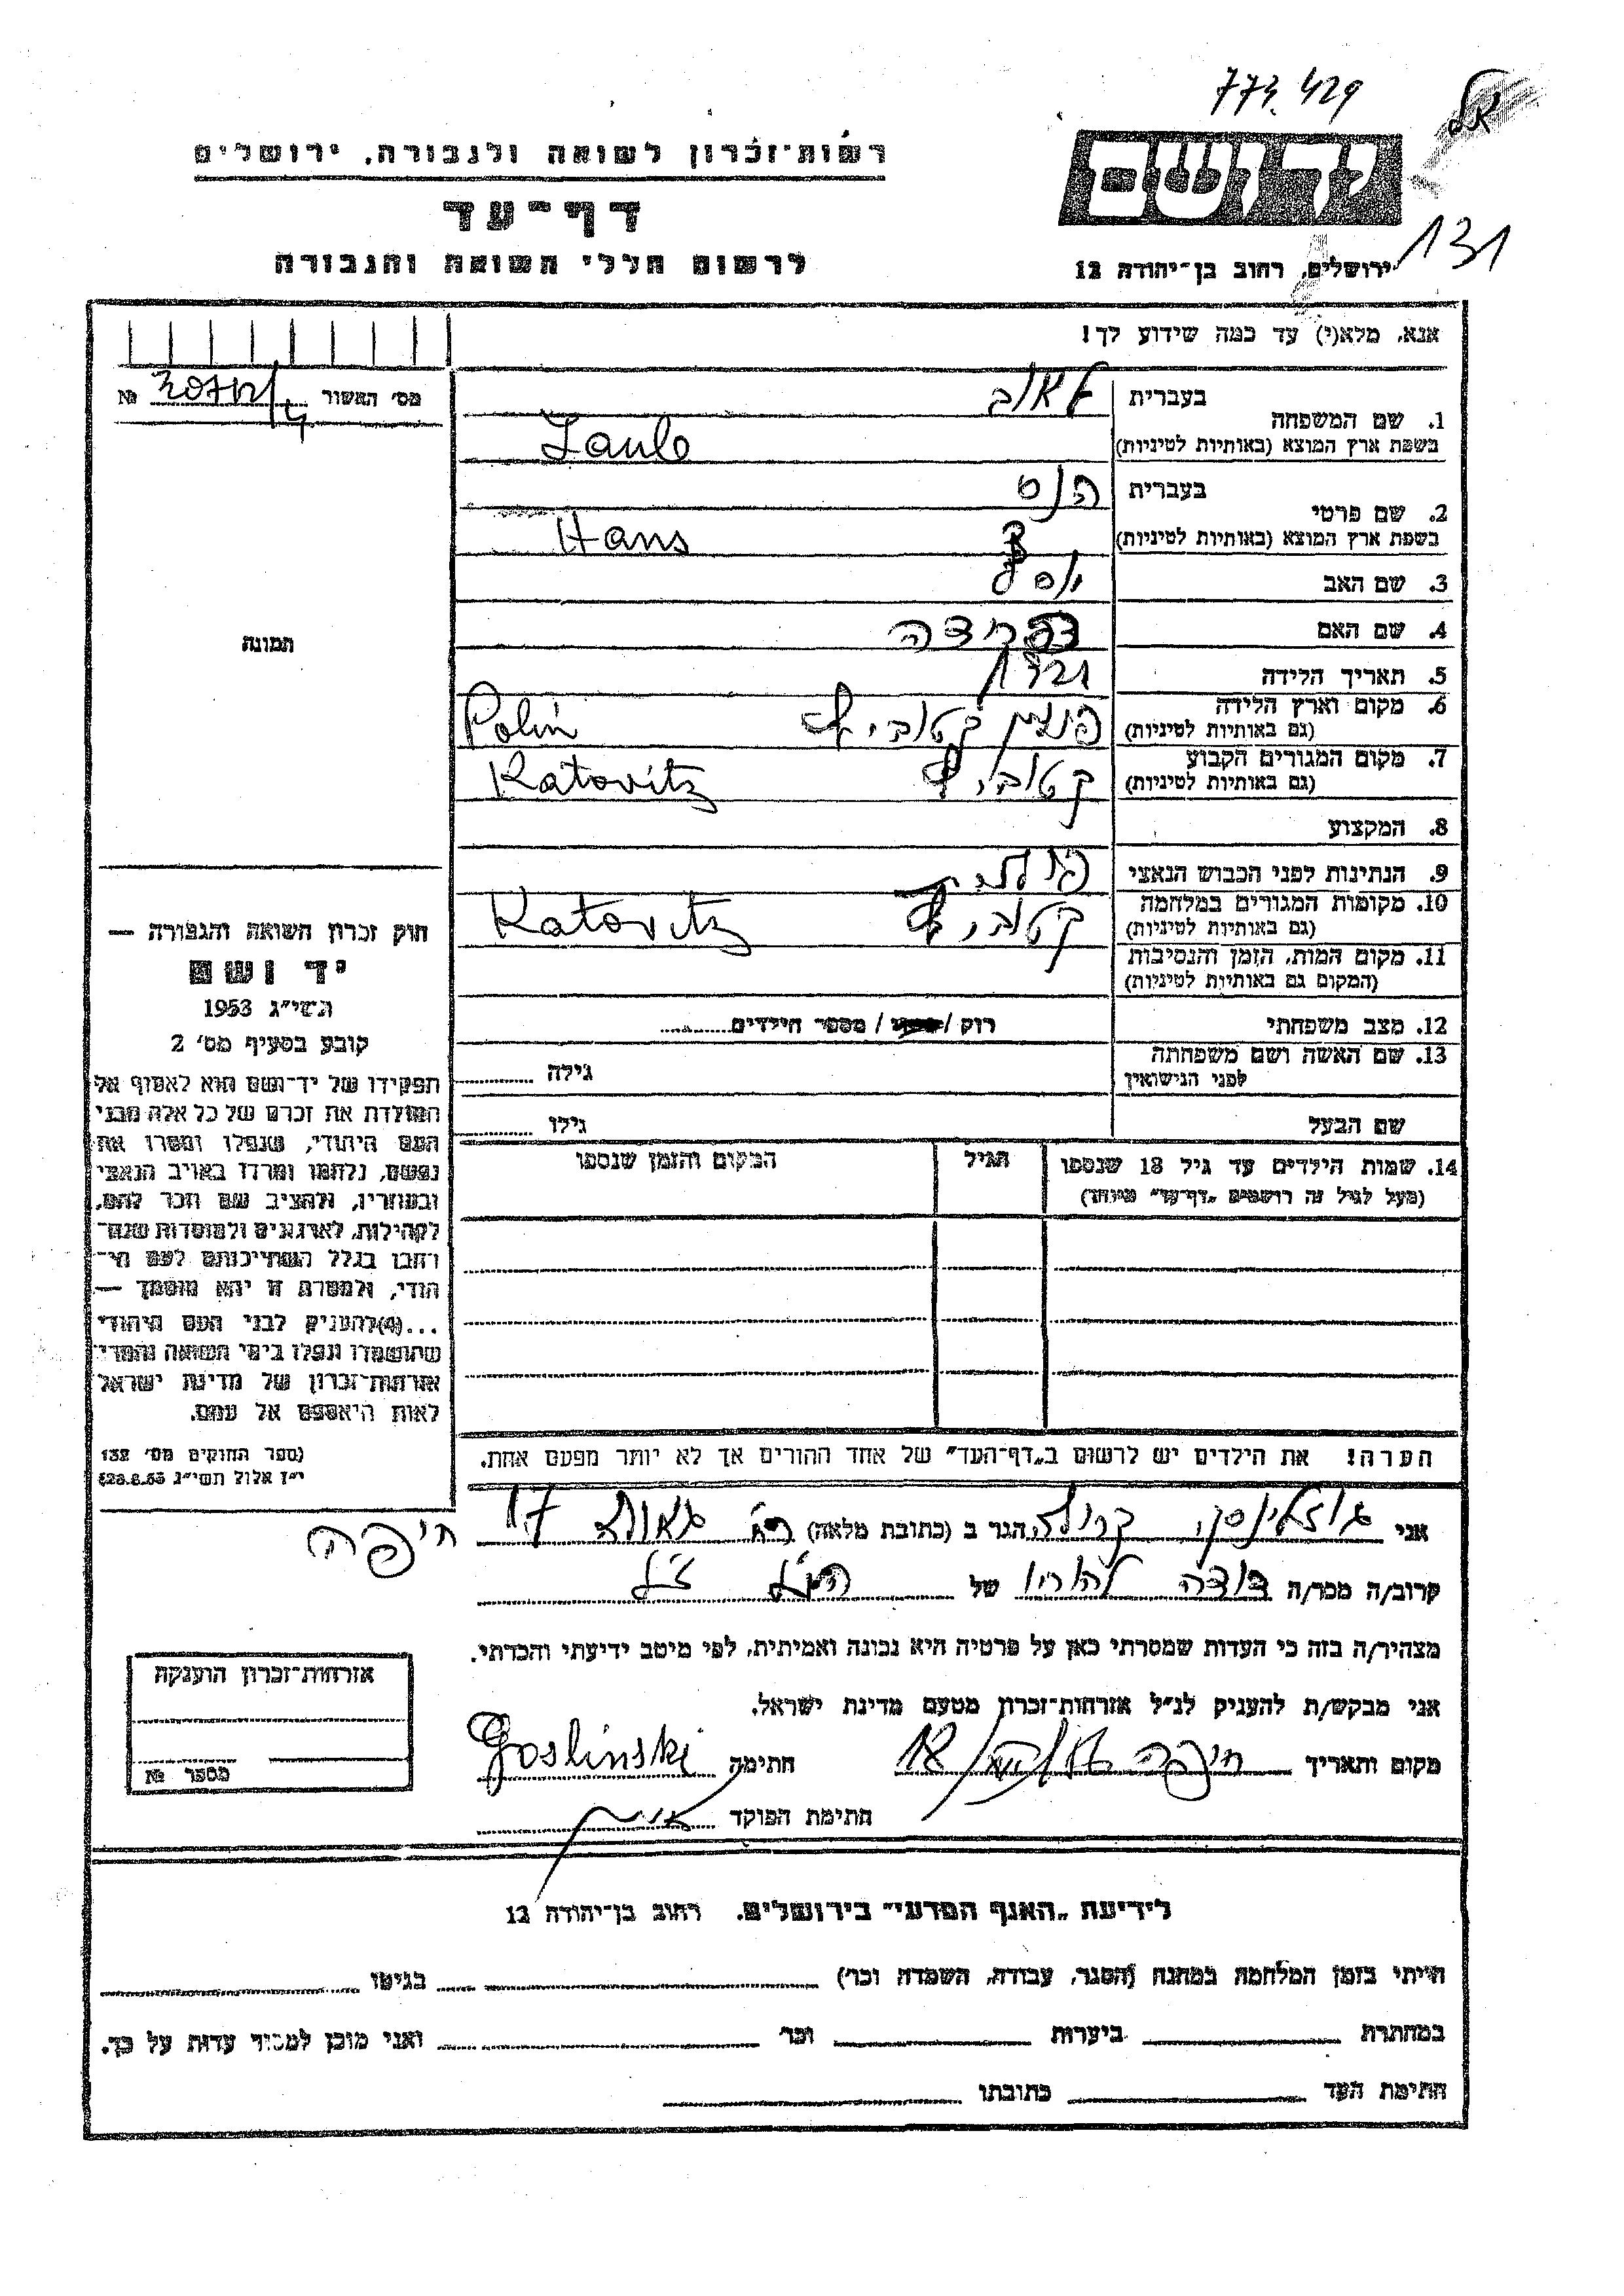 773.429
רשות־זכרון לשואה ולגבורה, ירושלים
דף־עד
לרשום חללי השואה והגבורה
יד ושם
131
ירושלים, רחוב בן־יהודה 12
אנא, מלא(י) עד כמה שידוע לך!
מס' האשור №
1. שם המשפחה
בעברית
בשפת ארץ המוצא (באותיות לטיניות)
2. שם פרטי
בעברית הנס
בשפת ארץ המוצא (באותיות לטיניות) Hans
3. שם האב יוסף
4. שם האם
5. תאריך הלידה
6. מקום וארץ הלידה
(גם באותיות לטיניות) פולין קטוביץ Polin
7. מקום המגורים הקבוע
(גם באותיות לטיניות) קטוביץ Katovitz
8. המקצוע
9. הנתינות לפני הכבוש הנאצי
10. מקומות המגורים במלחמה
(גם באותיות לטיניות) קטוביץ Katovitz
11. מקום המות, הזמן והנסיבות
(המקום גם באותיות לטיניות)
12. מצב משפחתי רוק / נשוי / מספר הילדים
13. שם האשה ושם משפחתה
לפני הנישואין גילה
שם הבעל גילו
14. שמות הילדים עד גיל 18 שנספו הגיל המקום והזמן שנספו
(מעל לגיל זה רושמים „דף־עד" מיוחד)
הערה! את הילדים יש לרשום ב„דף־העד" של אחד ההורים אך לא יותר מפעם אחת.
תמונה
חוק זכרון השואה והגבורה —
יד ושם
תשי"ג 1953
קובע בסעיף מס' 2
תפקידו של יד־ושם הוא לאסוף אל
המולדת את זכרם של כל אלה מבני
העם היהודי, שנפלו ומסרו את
נפשם, נלחמו ומרדו באויב הנאצי
ובעוזריו, ולהציב שם וזכר להם,
לקהילות, לארגונים ולמוסדות שנח־
רבו בגלל השתייכותם לעם הי־
הודי, ולמטרה זו יהא מוסמך —
...(4)להעניק לבני העם היהודי
שהושמדו ונפלו בימי השואה והמרי
אזרחות־זכרון של מדינת ישראל
לאות היאספם אל עמם.
(ספר החוקים מס' 132
י"ז אלול תשי"ג 28.8.53)
אני הגר ב (כתובת מלאה) רח' גאולה 17 חיפה
קרוב/ה מכר/ה דודה של הנ"ל ז"ל
מצהיר/ה בזה כי העדות שמסרתי כאן על פרטיה היא נכונה ואמיתית, לפי מיטב ידיעתי והכרתי.
אני מבקש/ת להעניק לנ"ל אזרחות־זכרון מטעם מדינת ישראל.
מקום ותאריך חיפה חתימה Goslinski
חתימת הפוקד
אזרחות־זכרון הוענקה
מספר №
לידיעת „האגף המדעי" בירושלים, רחוב בן־יהודה 12
הייתי בזמן המלחמה במחנה (הסגר, עבודה, השמדה וכו') בגיטו
במחתרת ביערות וכו' ואני מוכן למסור עדות על כך.
חתימת העד כתובתו